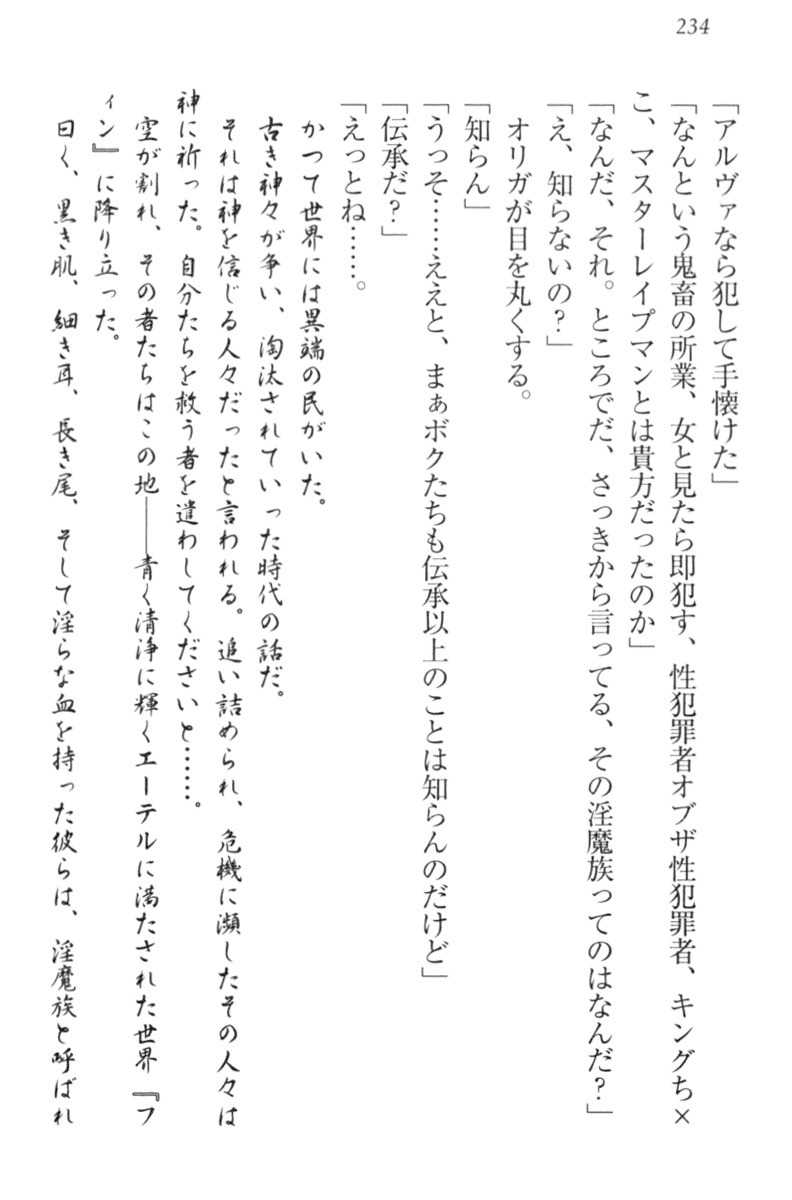 234
「アルヴァなら犯して手懐けた」
「なんという鬼畜の所業、女と見たら即犯す、性犯罪者オブザ性犯罪者、キングち×
こ、マスターレイプマンとは貴方だったのか」
「なんだ、それ。ところでだ、さっきから言ってる、その淫魔族ってのはなんだ？」
「え、知らないの？」
オリガが目を丸くする。
「知らん」
「うっそ……ええと、まぁボクたちも伝承以上のことは知らんのだけど」
「伝承だ？」
「えっとね……。
かつて世界には異端の民がいた。
古き神々が争い、淘汰されていった時代の話だ。
それは神を信じる人々だったと言われる。追い詰められ、危機に瀕したその人々は
神に祈った。自分たちを救う者を遣わしてくださいと……。
空が割れ、その者たちはこの地――青く清浄に輝くエーテルに満たされた世界『フ
ィン』に降り立った。
曰く、黒き肌、細き耳、長き尾、そして淫らな血を持った彼らは、淫魔族と呼ばれ